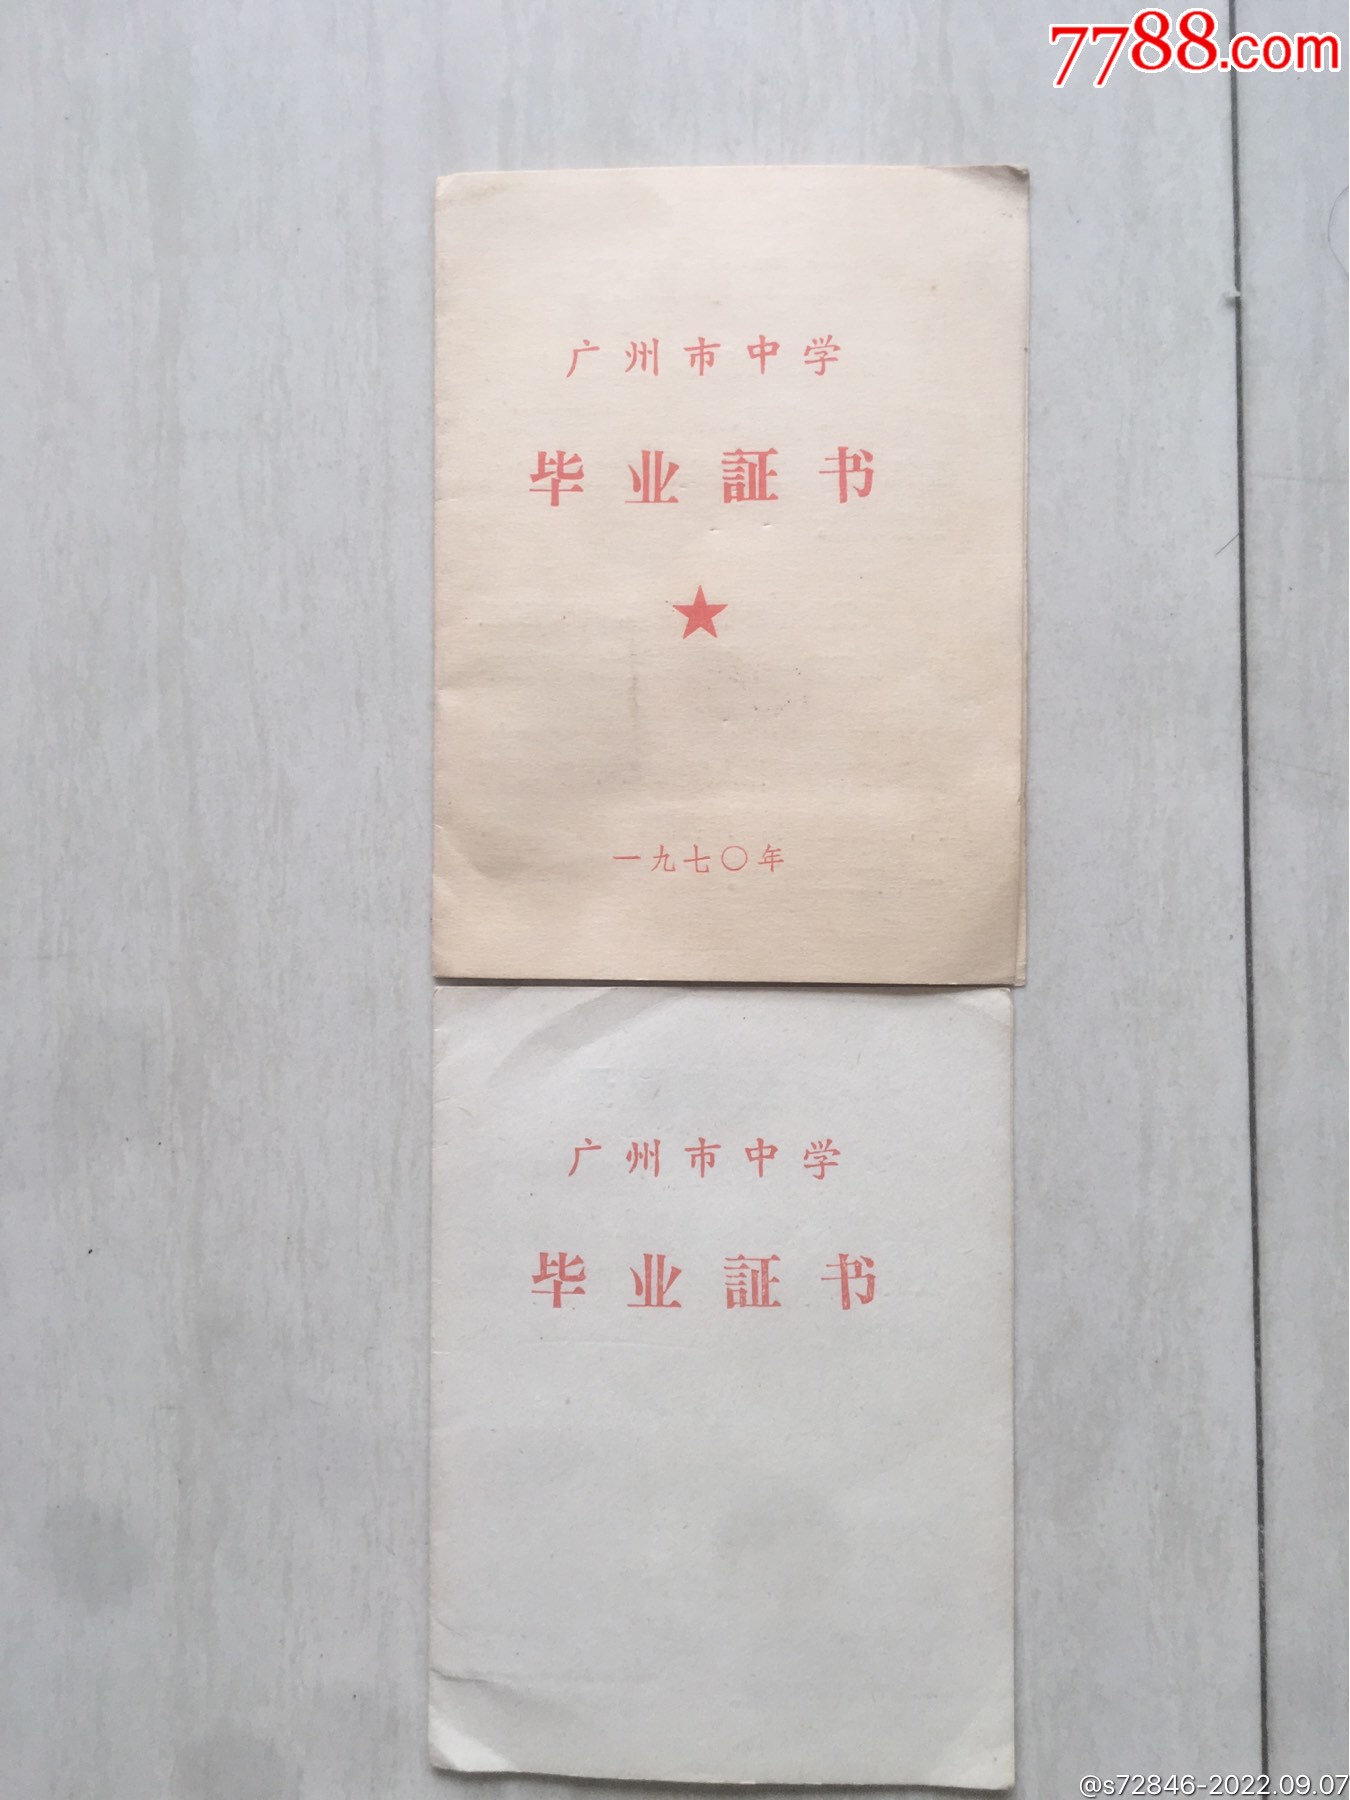 7788.com
广州市中学
毕业証书
一九七〇年
广州市中学
毕业証书
@s72846-2022.09.07